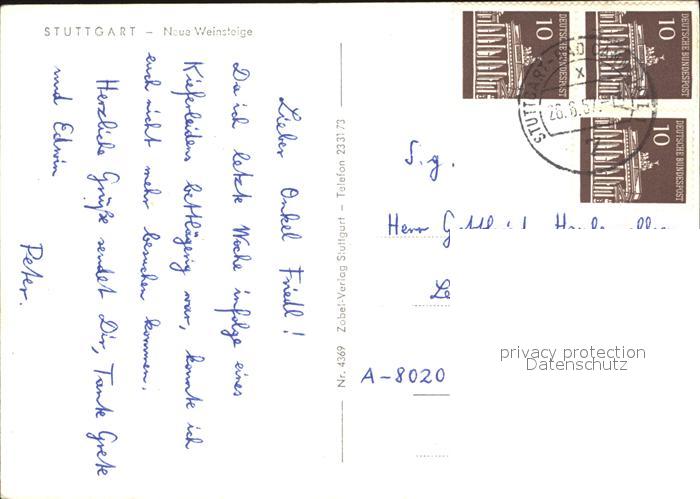 STUTTGART – Neue Weinsteige
Lieber Onkel Friedl!
Da ich letzte Woche infolge eines
Kieferleidens bettlägerig war, konnte ich
euch nicht mehr besuchen kommen.
Herzliche Grüße sendet Dir, Tante Grete
und Edwin
Peter.
Nr. 4369 Zobel-Verlag Stuttgart – Telefon 233173
10 DEUTSCHE BUNDESPOST
10 DEUTSCHE BUNDESPOST
10 DEUTSCHE BUNDESPOST
STUTTGART-BAD
26.6.67
S.g.
Herr
A-8020
privacy protection
Datenschutz